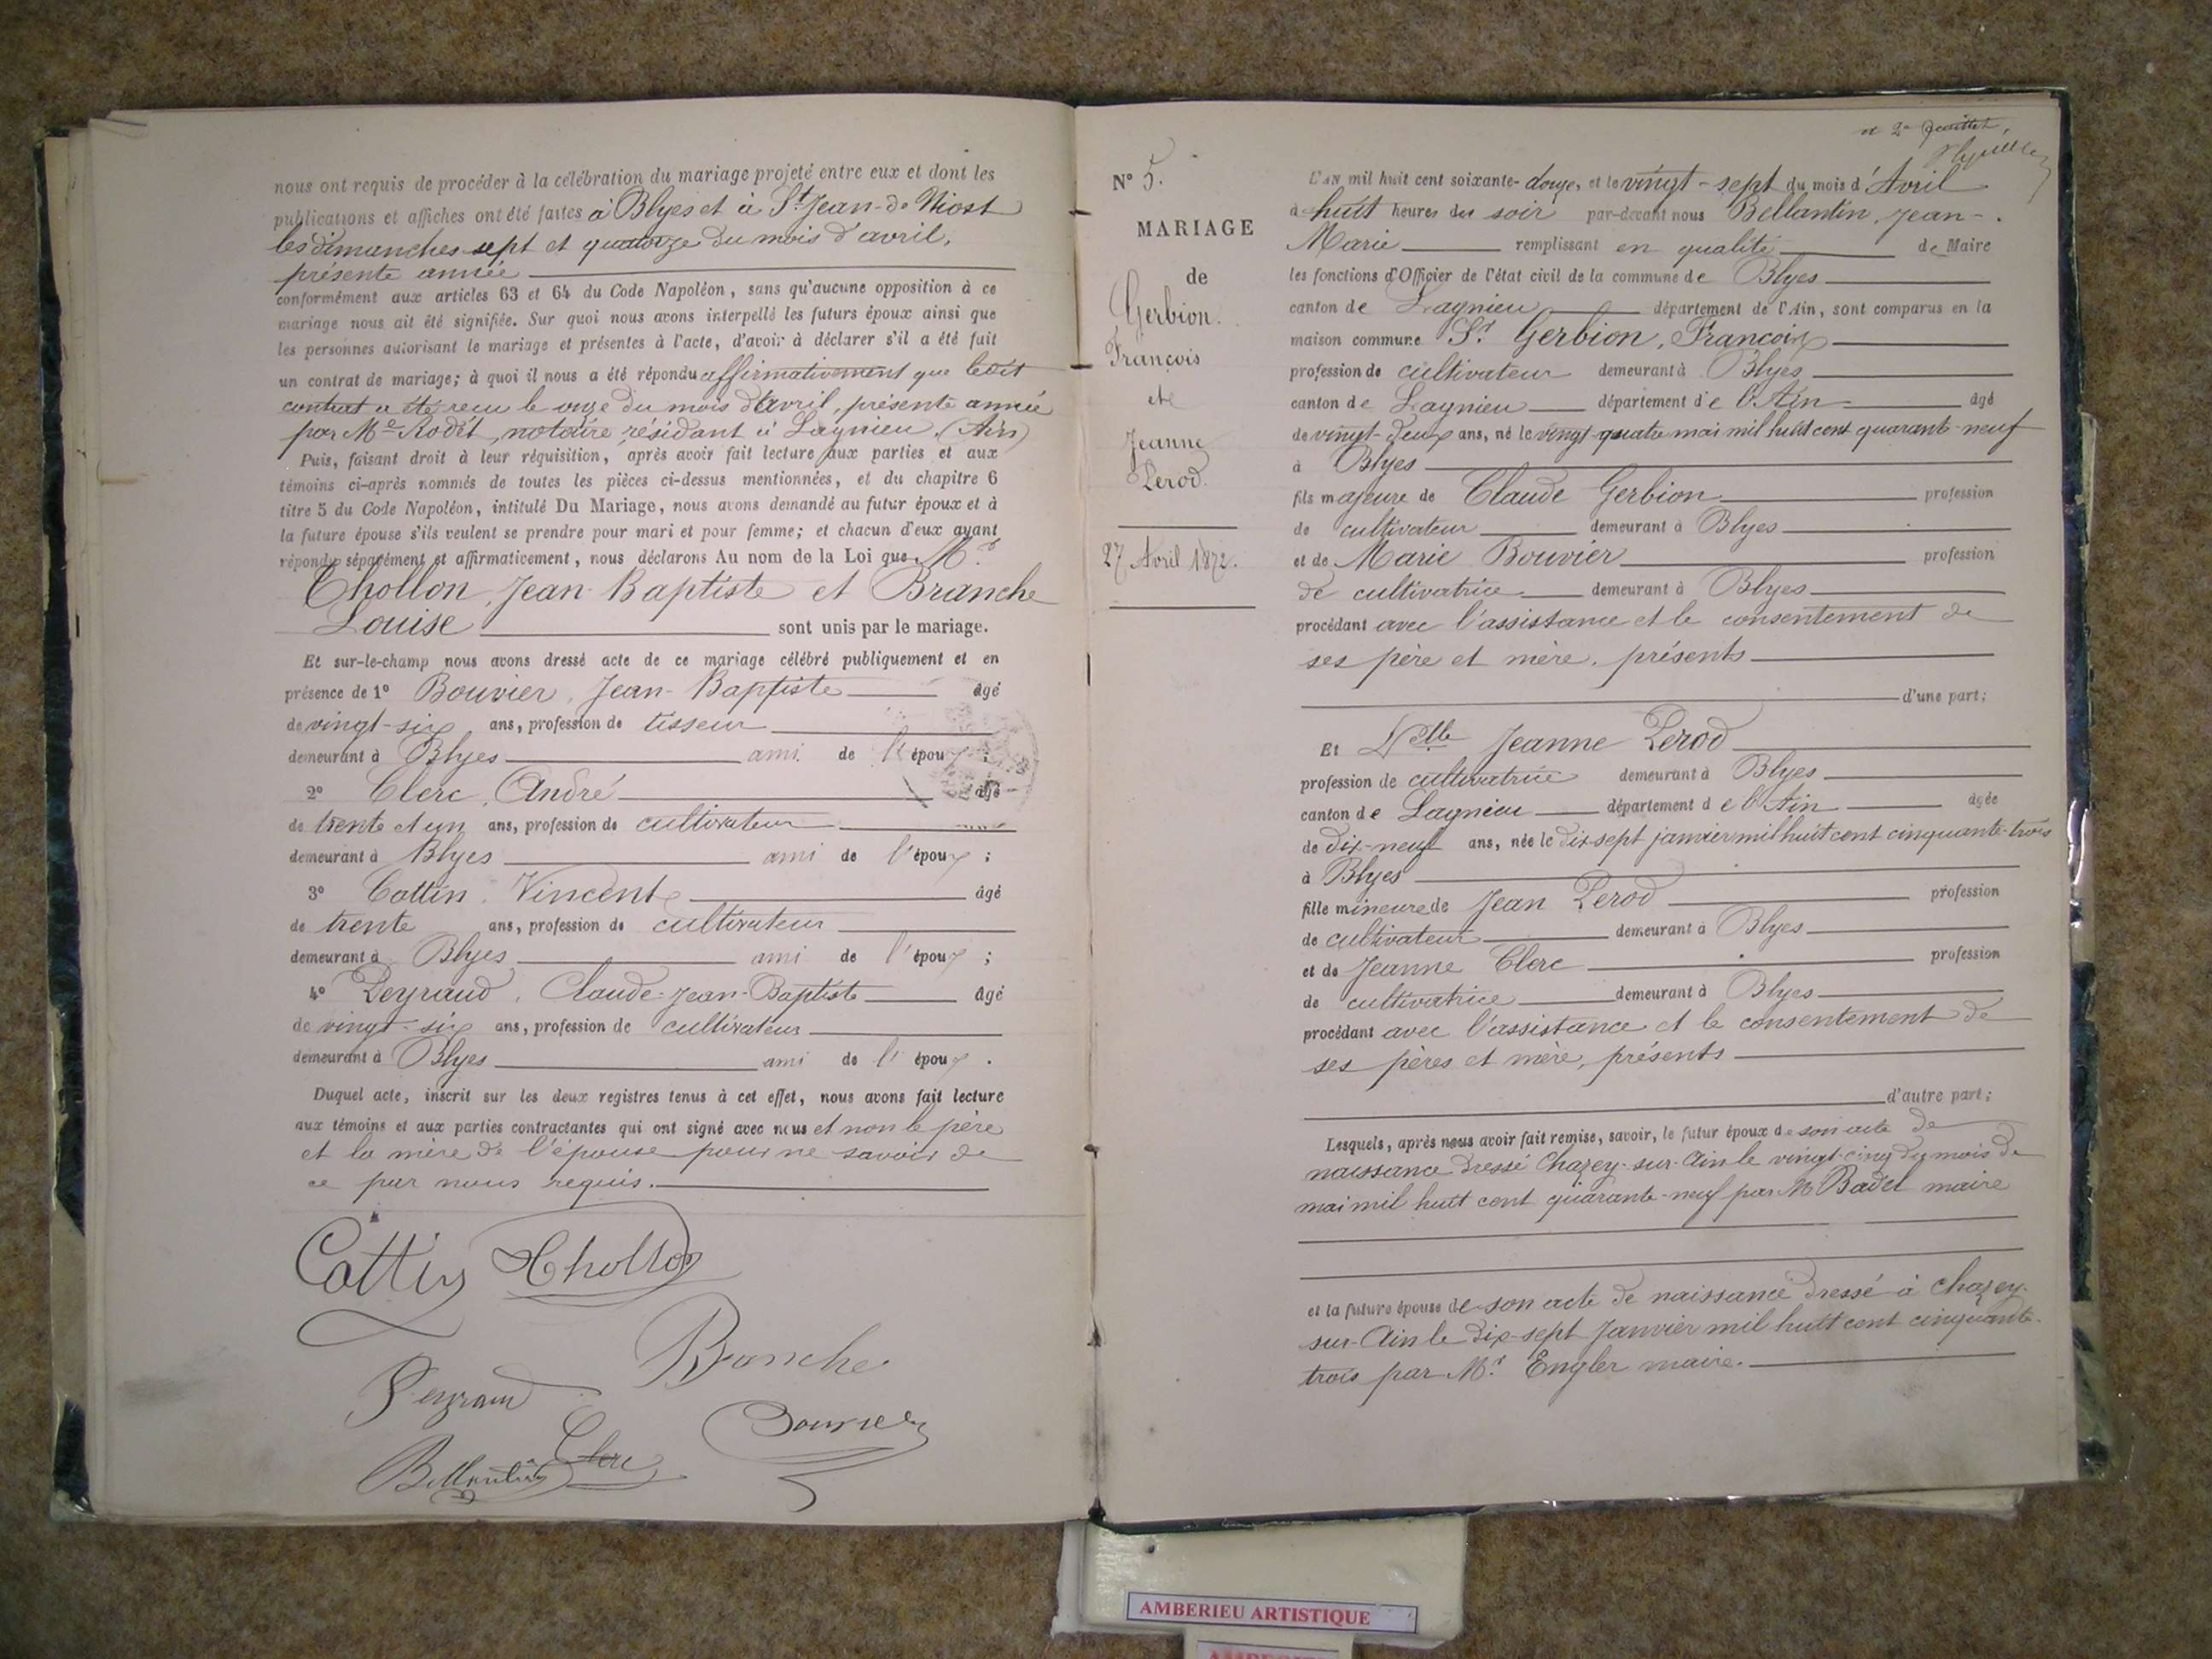 nous ont requis de procéder à la célébration du mariage projeté entre eux et dont les
publications et affiches ont été faites à Blyes et à St Jean-de Niost
les dimanches sept et quatorze du mois d'avril,
présente année
conformément aux articles 63 et 64 du Code Napoléon, sans qu'aucune opposition à ce
mariage nous ait été signifiée. Sur quoi nous avons interpellé les futurs époux ainsi que
les personnes autorisant le mariage et présentes à l'acte, d'avoir à déclarer s'il a été fait
un contrat de mariage; à quoi il nous a été répondu affirmativement que ledit
contrat a été reçu le onze du mois d'avril, présente année
par Me Rodet, notaire résidant à Lagnieu (Ain)
Puis, faisant droit à leur réquisition, après avoir fait lecture aux parties et aux
témoins ci-après nommés de toutes les pièces ci-dessus mentionnées, et du chapitre 6
titre 5 du Code Napoléon, intitulé Du Mariage, nous avons demandé au futur époux et à
la future épouse s'ils veulent se prendre pour mari et pour femme; et chacun d'eux ayant
répondu séparément et affirmativement, nous déclarons Au nom de la Loi que Mr
Chollon, Jean Baptiste et Branche
Louise sont unis par le mariage.
Et sur-le-champ nous avons dressé acte de ce mariage célébré publiquement et en
présence de 1° Bouvier, Jean-Baptiste âgé
de vingt-six ans, profession de tisseur
demeurant à Blyes ami de l'époux;
2° Clerc, André âgé
de trente et un ans, profession de cultivateur
demeurant à Blyes ami de l'époux;
3° Cottin, Vincent âgé
de trente ans, profession de cultivateur
demeurant à Blyes ami de l'époux;
4° Peyraud, Claude-Jean-Baptiste âgé
de vingt-six ans, profession de cultivateur
demeurant à Blyes ami de l'époux.
Duquel acte, inscrit sur les deux registres tenus à cet effet, nous avons fait lecture
aux témoins et aux parties contractantes qui ont signé avec nous et non le père
et la mère de l'épouse pour ne savoir de
ce par nous requis.
Cottin Chollon
Branche
Peyraud
Bouvier
Clerc
Bellantin
N° 5.
MARIAGE
de
Gerbion
François
et
Jeanne
Perod.
27 Avril 1872.
L'AN mil huit cent soixante-douze, et le vingt-sept du mois d'Avril
à huit heures du soir par-devant nous Bellantin, Jean-
Marie remplissant en qualité de Maire
les fonctions d'Officier de l'état civil de la commune de Blyes
canton de Lagnieu département de l'Ain, sont comparus en la
maison commune Sr. Gerbion, François
profession de cultivateur demeurant à Blyes
canton de Lagnieu département de l'Ain âgé
de vingt-deux ans, né le vingt-quatre mai mil huit cent quarante-neuf
à Blyes
fils majeure de Claude Gerbion profession
de cultivateur demeurant à Blyes
et de Marie Bouvier profession
de cultivatrice demeurant à Blyes
procédant avec l'assistance et le consentement de
ses père et mère, présents
d'une part;
Et Delle Jeanne Perod
profession de cultivatrice demeurant à Blyes
canton de Lagnieu département de l'Ain âgée
de dix-neuf ans, née le dix-sept janvier mil huit cent cinquante-trois
à Blyes
fille mineure de Jean Perod profession
de cultivateur demeurant à Blyes
et de Jeanne Clerc profession
de cultivatrice demeurant à Blyes
procédant avec l'assistance et le consentement de
ses pères et mère, présents
d'autre part;
Lesquels, après nous avoir fait remise, savoir, le futur époux de son acte de
naissance dressé Chazey-sur-Ain le vingt-cinq du mois de
mai mil huit cent quarante-neuf par M Badel maire
et la future épouse de son acte de naissance dressé à Chazey-
sur-Ain le dix-sept Janvier mil huit cent cinquante-
trois par Mr. Engler maire.
AMBERIEU ARTISTIQUE